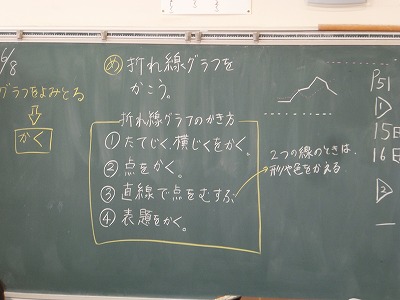 6/8
グラフをよみとる
かく
め 折れ線グラフを
かこう。
折れ線グラフのかき方
① たてじく、横じくをかく。
② 点をかく。
③ 直線で点をむすぶ
④ 表題をかく。
2つの線のときは、
形や色をかえる
P51
1
15日
16日
2